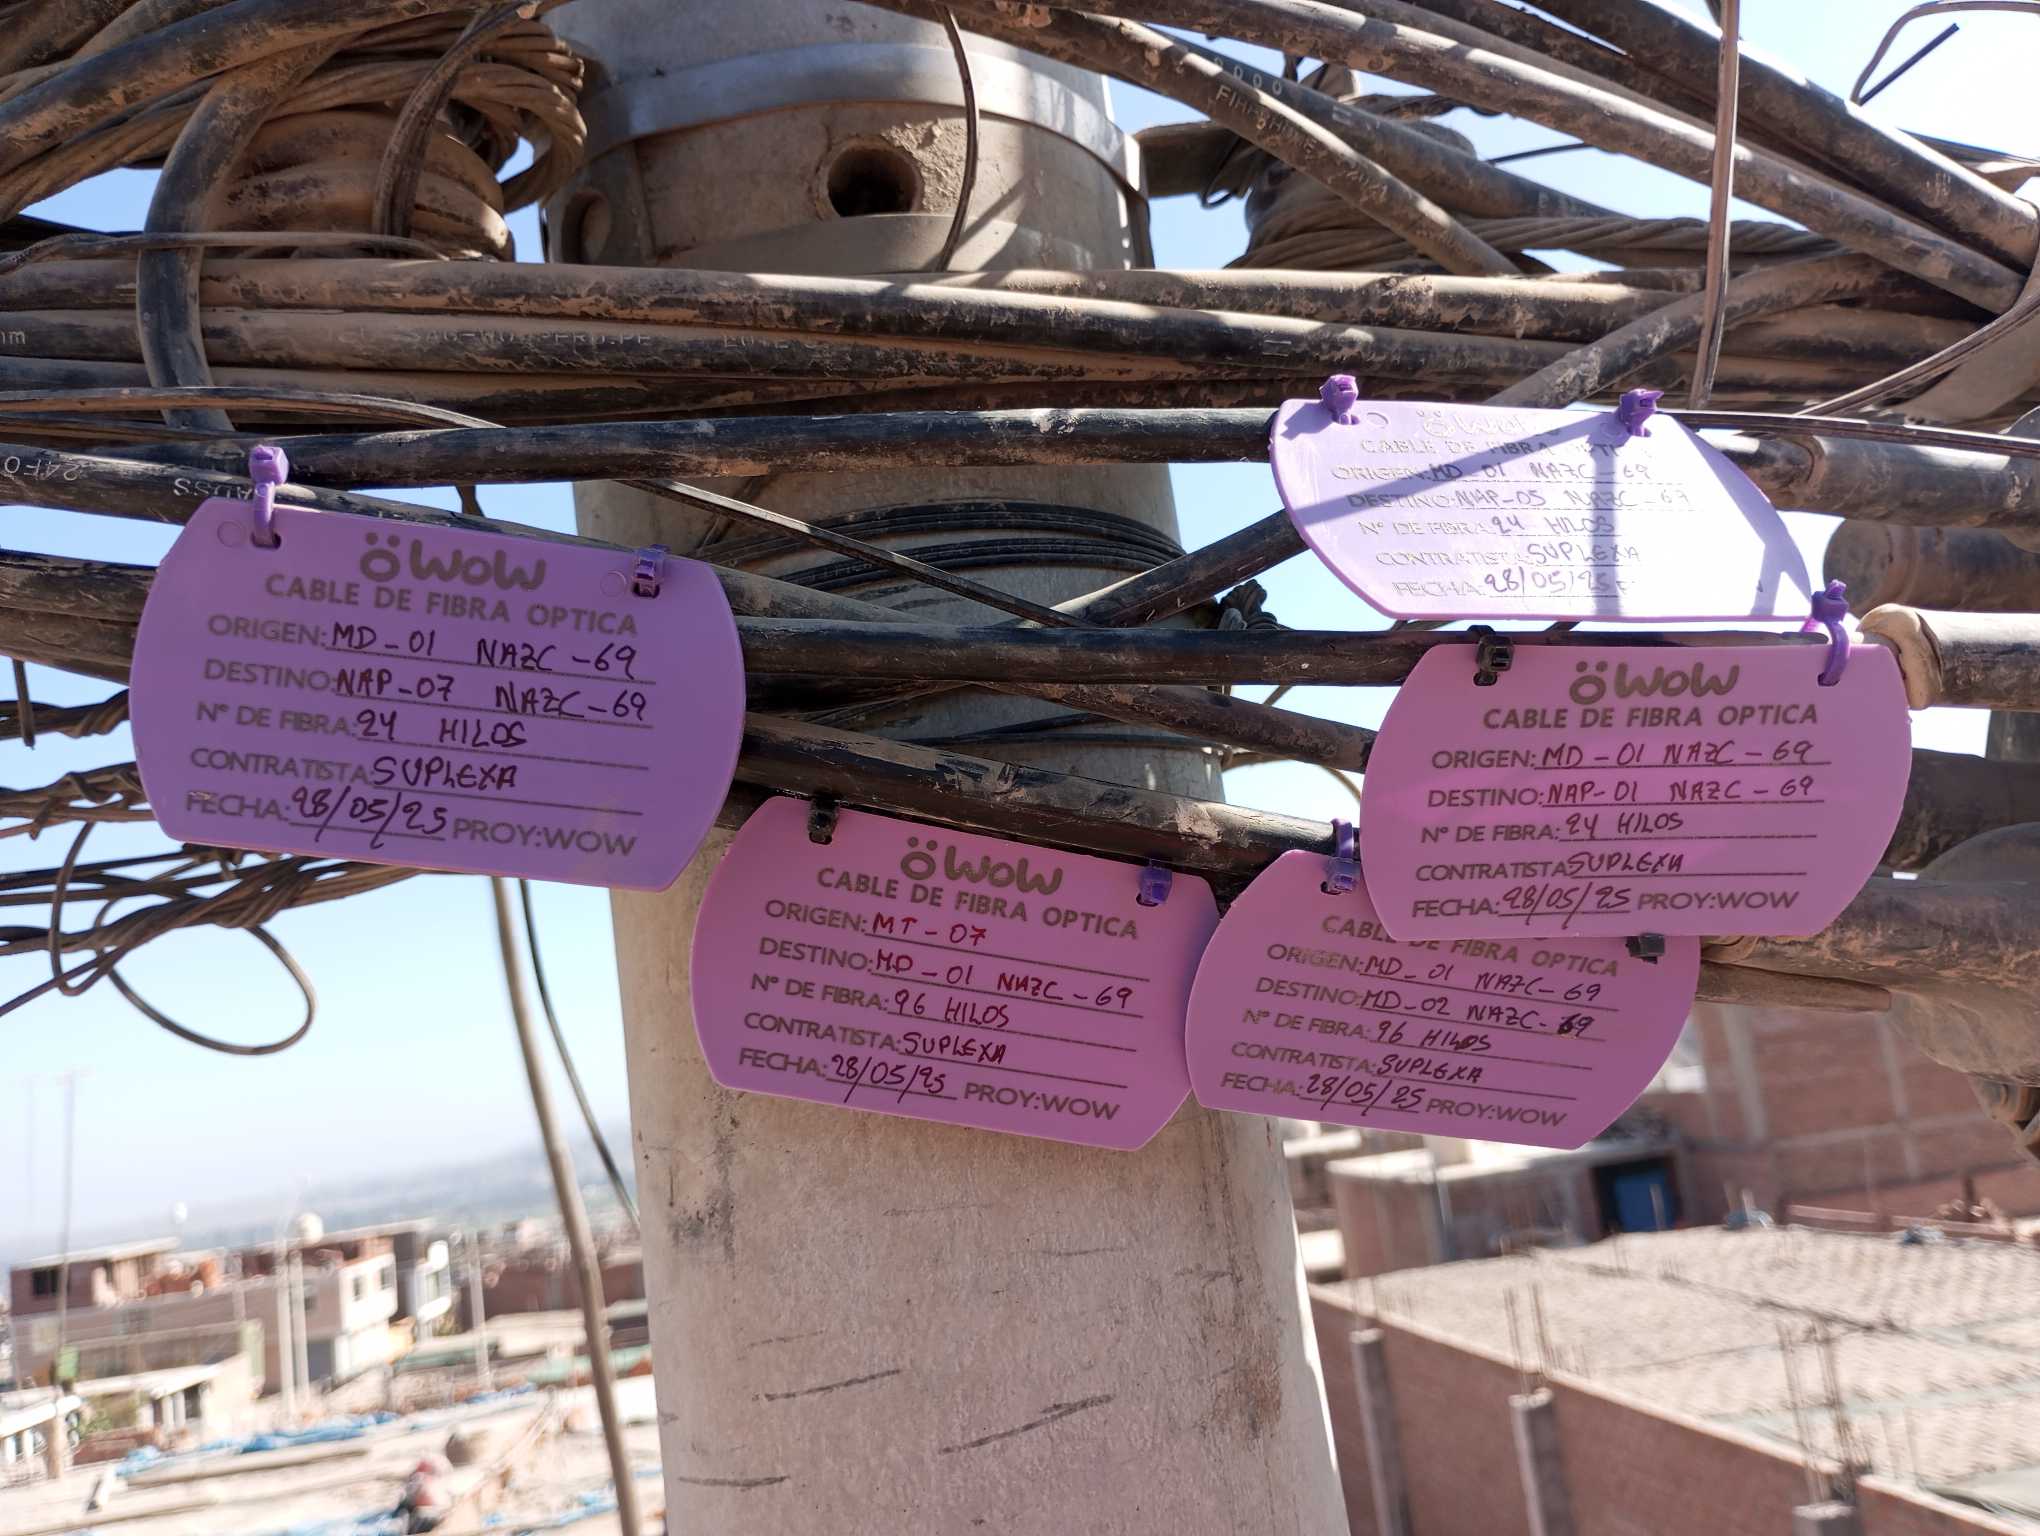 24FO
wow
CABLE DE FIBRA OPTICA
ORIGEN: MD-01 NAZC-69
DESTINO: NAP-07 NAZC-69
N° DE FIBRA: 24 HILOS
CONTRATISTA: SUPLEXA
FECHA: 28/05/25 PROY:WOW
wow
CABLE DE FIBRA OPTICA
ORIGEN: MT-07
DESTINO: MD-01 NAZC-69
N° DE FIBRA: 96 HILOS
CONTRATISTA: SUPLEXA
FECHA: 28/05/25 PROY:WOW
wow
CABLE DE FIBRA OPTICA
ORIGEN: MD-01 NAZC-69
DESTINO: NAP-05 NAZC-69
N° DE FIBRA: 24 HILOS
CONTRATISTA: SUPLEXA
FECHA: 28/05/25
wow
CABLE DE FIBRA OPTICA
ORIGEN: MD-01 NAZC-69
DESTINO: NAP-01 NAZC-69
N° DE FIBRA: 24 HILOS
CONTRATISTA: SUPLEXA
FECHA: 28/05/25 PROY:WOW
CABLE DE FIBRA OPTICA
ORIGEN: MD-01 NAZC-69
DESTINO: MD-02 NAZC-69
N° DE FIBRA: 96 HILOS
CONTRATISTA: SUPLEXA
FECHA: 28/05/25 PROY:WOW